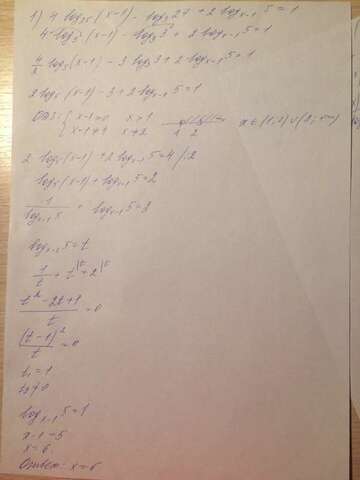 1) 4 log₂₅(x-1) - log₃27 + 2 logₓ₋₁5 = 1
4·log₅²(x-1) - log₃3³ + 2 logₓ₋₁5 = 1
4/2 log₅(x-1) - 3 log₃3 + 2 logₓ₋₁5 = 1
2 log₅(x-1) - 3 + 2 logₓ₋₁5 = 1
ОДЗ: { x-1>0 x>1
x-1≠1 x≠2 1 2 x∈(1;2)∪(2;+∞)
2 log₅(x-1) + 2 logₓ₋₁5 = 4 /:2
log₅(x-1) + logₓ₋₁5 = 2
1/logₓ₋₁5 + logₓ₋₁5 = 2
logₓ₋₁5 = t
1/t + t = 2
(t² - 2t + 1)/t = 0
(t-1)²/t = 0
t₁ = 1
t₂ ≠ 0
logₓ₋₁5 = 1
x-1 = 5
x = 6
Ответ: x = 6